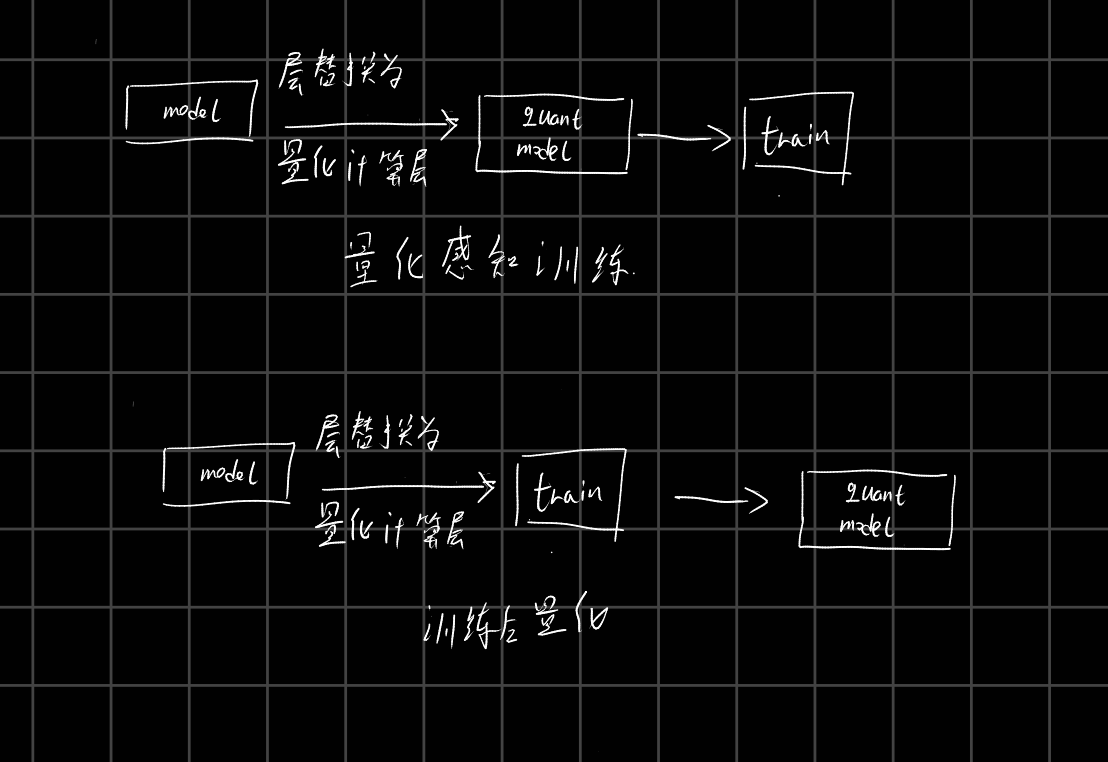 model
层替换为
量化计算层
quant
model
train
量化感知训练.
model
层替换为
量化计算层
train
quant
model
训练后量化